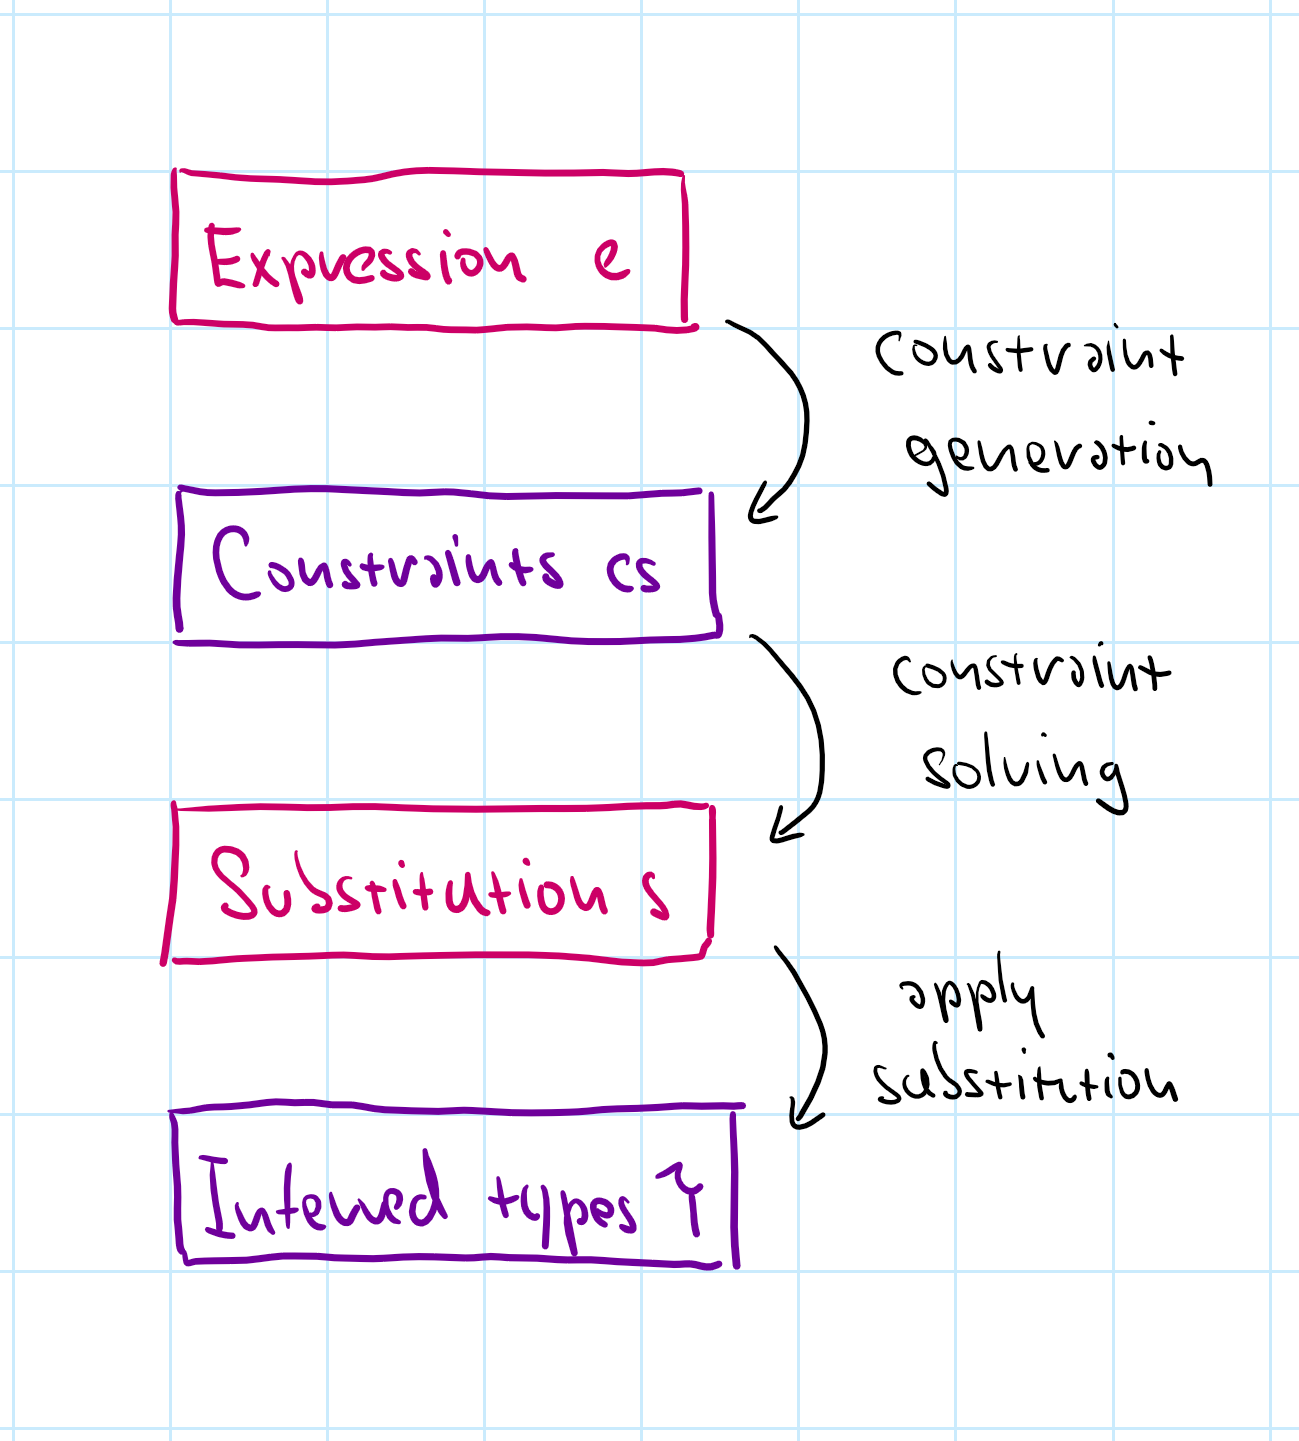 Expression e
constraint
generation
Constraints cs
constraint
solving
Substitution s
apply
substitution
Inferred types τ